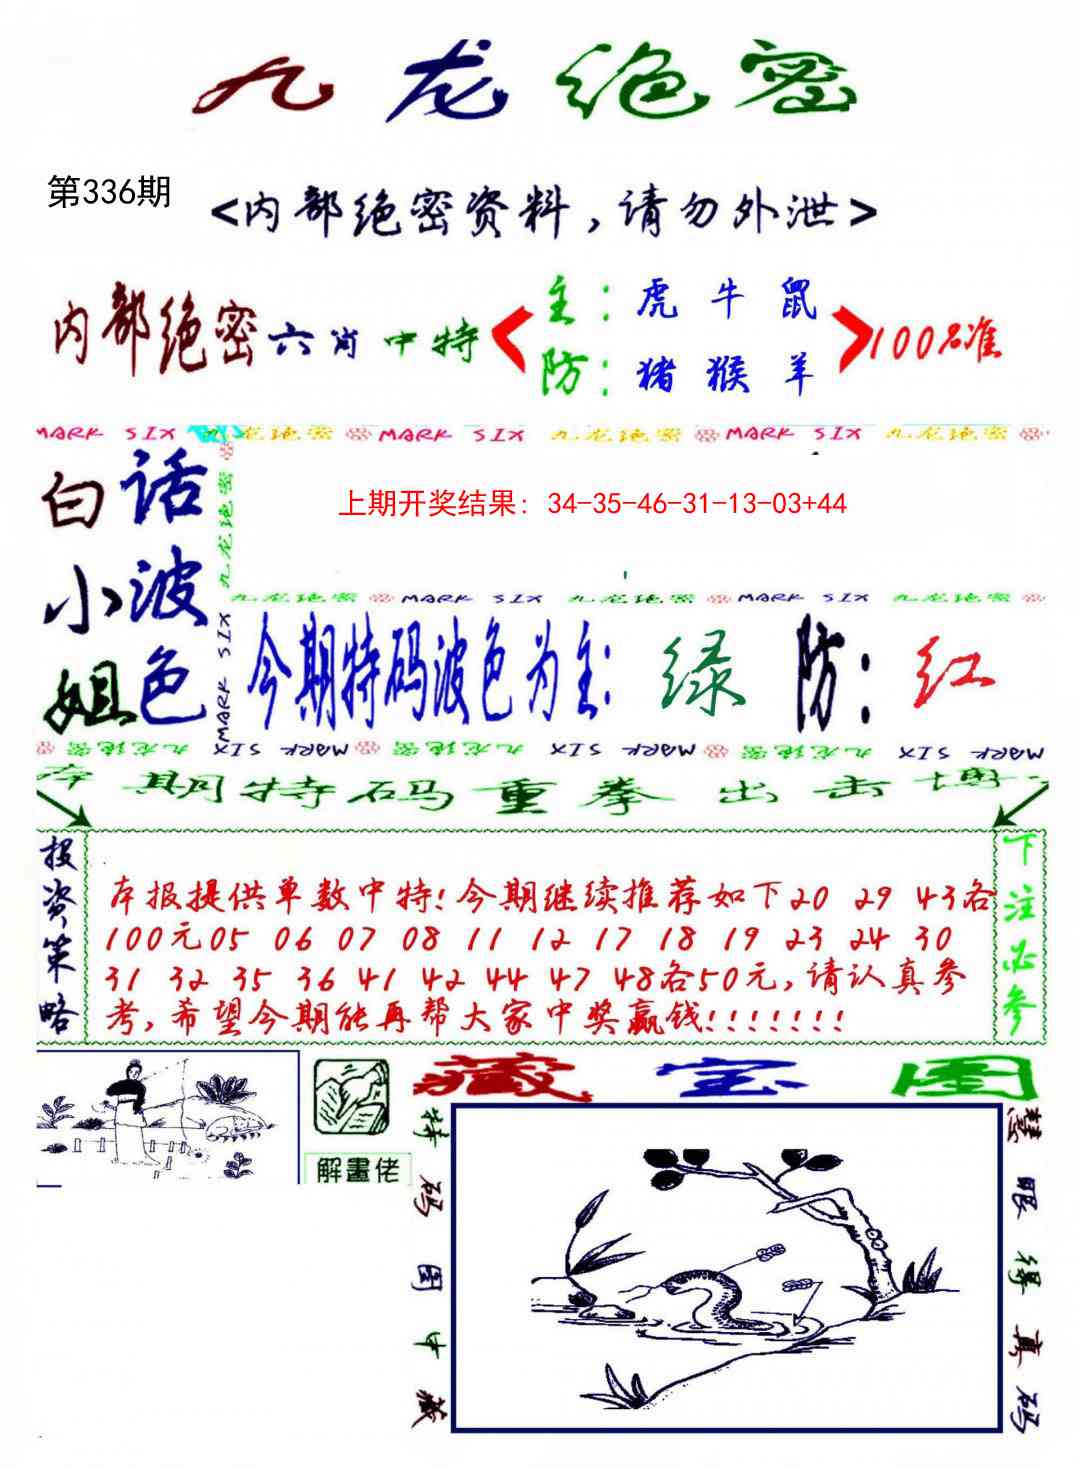 九龙绝密
第336期
<内部绝密资料,请勿外泄>
内部绝密六肖中特
主:虎牛鼠
防:猪猴羊
100%准
MARK SIX 九龙绝密 MARK SIX 九龙绝密 MARK SIX 九龙绝密
白话小姐波色
九龙绝密 MARK SIX
上期开奖结果: 34-35-46-31-13-03+44
九龙绝密 MARK SIX 九龙绝密 MARK SIX 九龙绝密
今期特码波色为主:绿 防:红
九龙绝密 MARK SIX 九龙绝密 MARK SIX 九龙绝密 MARK SIX
本期特码重拳出击博
投资策略
本报提供单数中特!今期继续推荐如下20 29 43各
100元05 06 07 08 11 12 17 18 19 23 24 30
31 32 35 36 41 42 44 47 48各50元,请认真参
考,希望今期能再帮大家中奖赢钱!!!!!!!
下注必参
解畫佬
藏宝图
特码图中藏
慧眼得真码